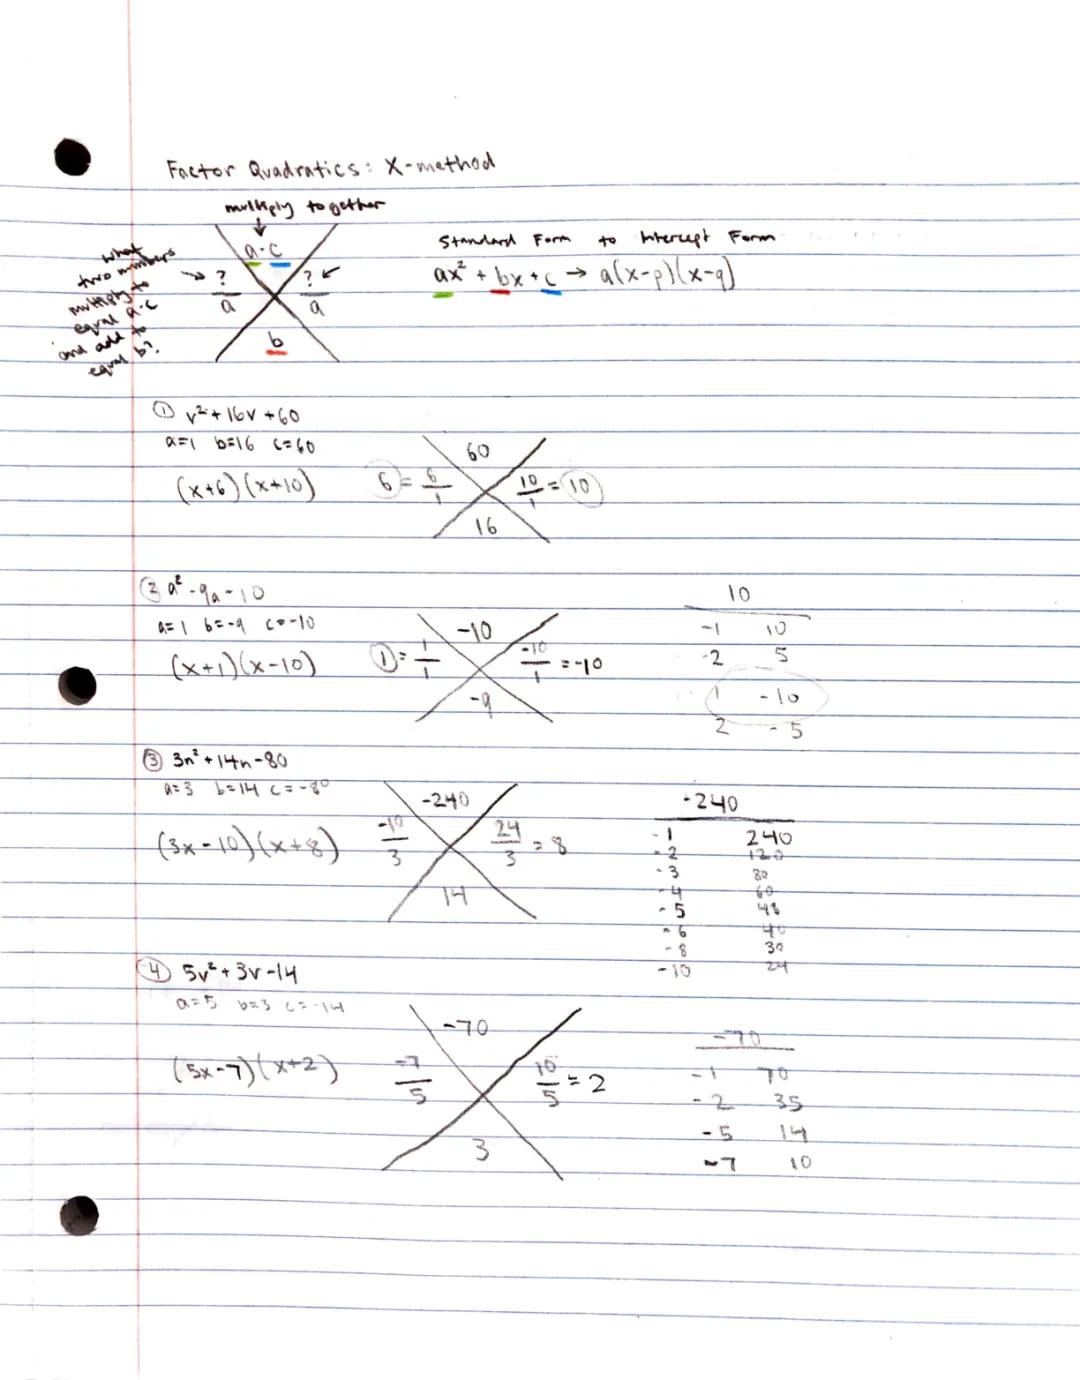 Factor Quadratics: X-method
multiply together
a·c
what two numbers multiply to equal a·c and add to equal b?
? ?
a a
b
Standard Form to Intercept Form
ax² + bx + c → a(x-p)(x-q)
① v² + 16v + 60
a=1 b=16 c=60
60
(x+6)(x+10) 6 = 6/1 10/1 = 10
16
② a² - 9a - 10
a=1 b=-9 c=-10
-10
(x+1)(x-10) ① = 1/1 -10/1 = -10
-9
10
-1 10
-2 5
1 -10
2 -5
③ 3n² + 14n - 80
a=3 b=14 c=-80
-240
(3x-10)(x+8) -10/3 24/3 = 8
14
-240
-1 240
-2 120
-3 80
-4 60
-5 48
-6 40
-8 30
-10 24
④ 5v² + 3v - 14
a=5 b=3 c=-14
-70
(5x-7)(x+2) -7/5 10/5 = 2
3
-70
-1 70
-2 35
-5 14
-7 10